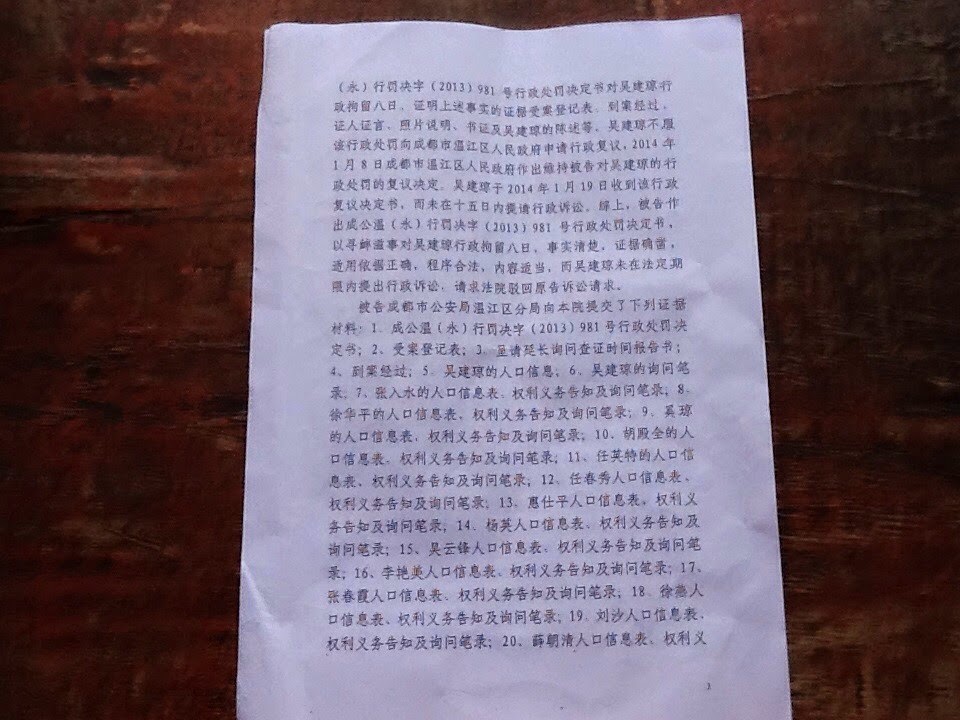 （永）行罚决字（2013）981 号行政处罚决定书对吴建琼行
政拘留八日，证明上述事实的证据受案登记表、到案经过、
证人证言、照片说明、书证及吴建琼的陈述等。吴建琼不服
该行政处罚向成都市温江区人民政府申请行政复议，2014 年
1 月 8 日成都市温江区人民政府作出维持被告对吴建琼的行
政处罚的复议决定。吴建琼于 2014 年 1 月 19 日收到该行政
复议决定书，而未在十五日内提请行政诉讼。综上，被告作
出成公温（永）行罚决字（2013）981 号行政处罚决定书，
以寻衅滋事对吴建琼行政拘留八日，事实清楚，证据确凿，
适用依据正确，程序合法，内容适当，而吴建琼未在法定期
限内提出行政诉讼，请求法院驳回原告诉讼请求。
被告成都市公安局温江区分局向本院提交了下列证据
材料：1、成公温（永）行罚决字（2013）981 号行政处罚决
定书；2、受案登记表；3、呈请延长询问查证时间报告书；
4、到案经过；5、吴建琼的人口信息；6、吴建琼的询问笔
录；7、张入水的人口信息表、权利义务告知及询问笔录；8、
徐华平的人口信息表、权利义务告知及询问笔录；9、吴琼
的人口信息表、权利义务告知及询问笔录；10、胡殿全的人
口信息表、权利义务告知及询问笔录；11、任英特的人口信
息表、权利义务告知及询问笔录；12、任春秀人口信息表、
权利义务告知及询问笔录；13、惠仕平人口信息表、权利义
务告知及询问笔录；14、杨英人口信息表、权利义务告知及
询问笔录；15、吴云锋人口信息表、权利义务告知及询问笔
录；16、李艳美人口信息表、权利义务告知及询问笔录；17、
张春霞人口信息表、权利义务告知及询问笔录；18、徐燕人
口信息表、权利义务告知及询问笔录；19、刘沙人口信息表、
权利义务告知及询问笔录；20、薛朝清人口信息表、权利义
3